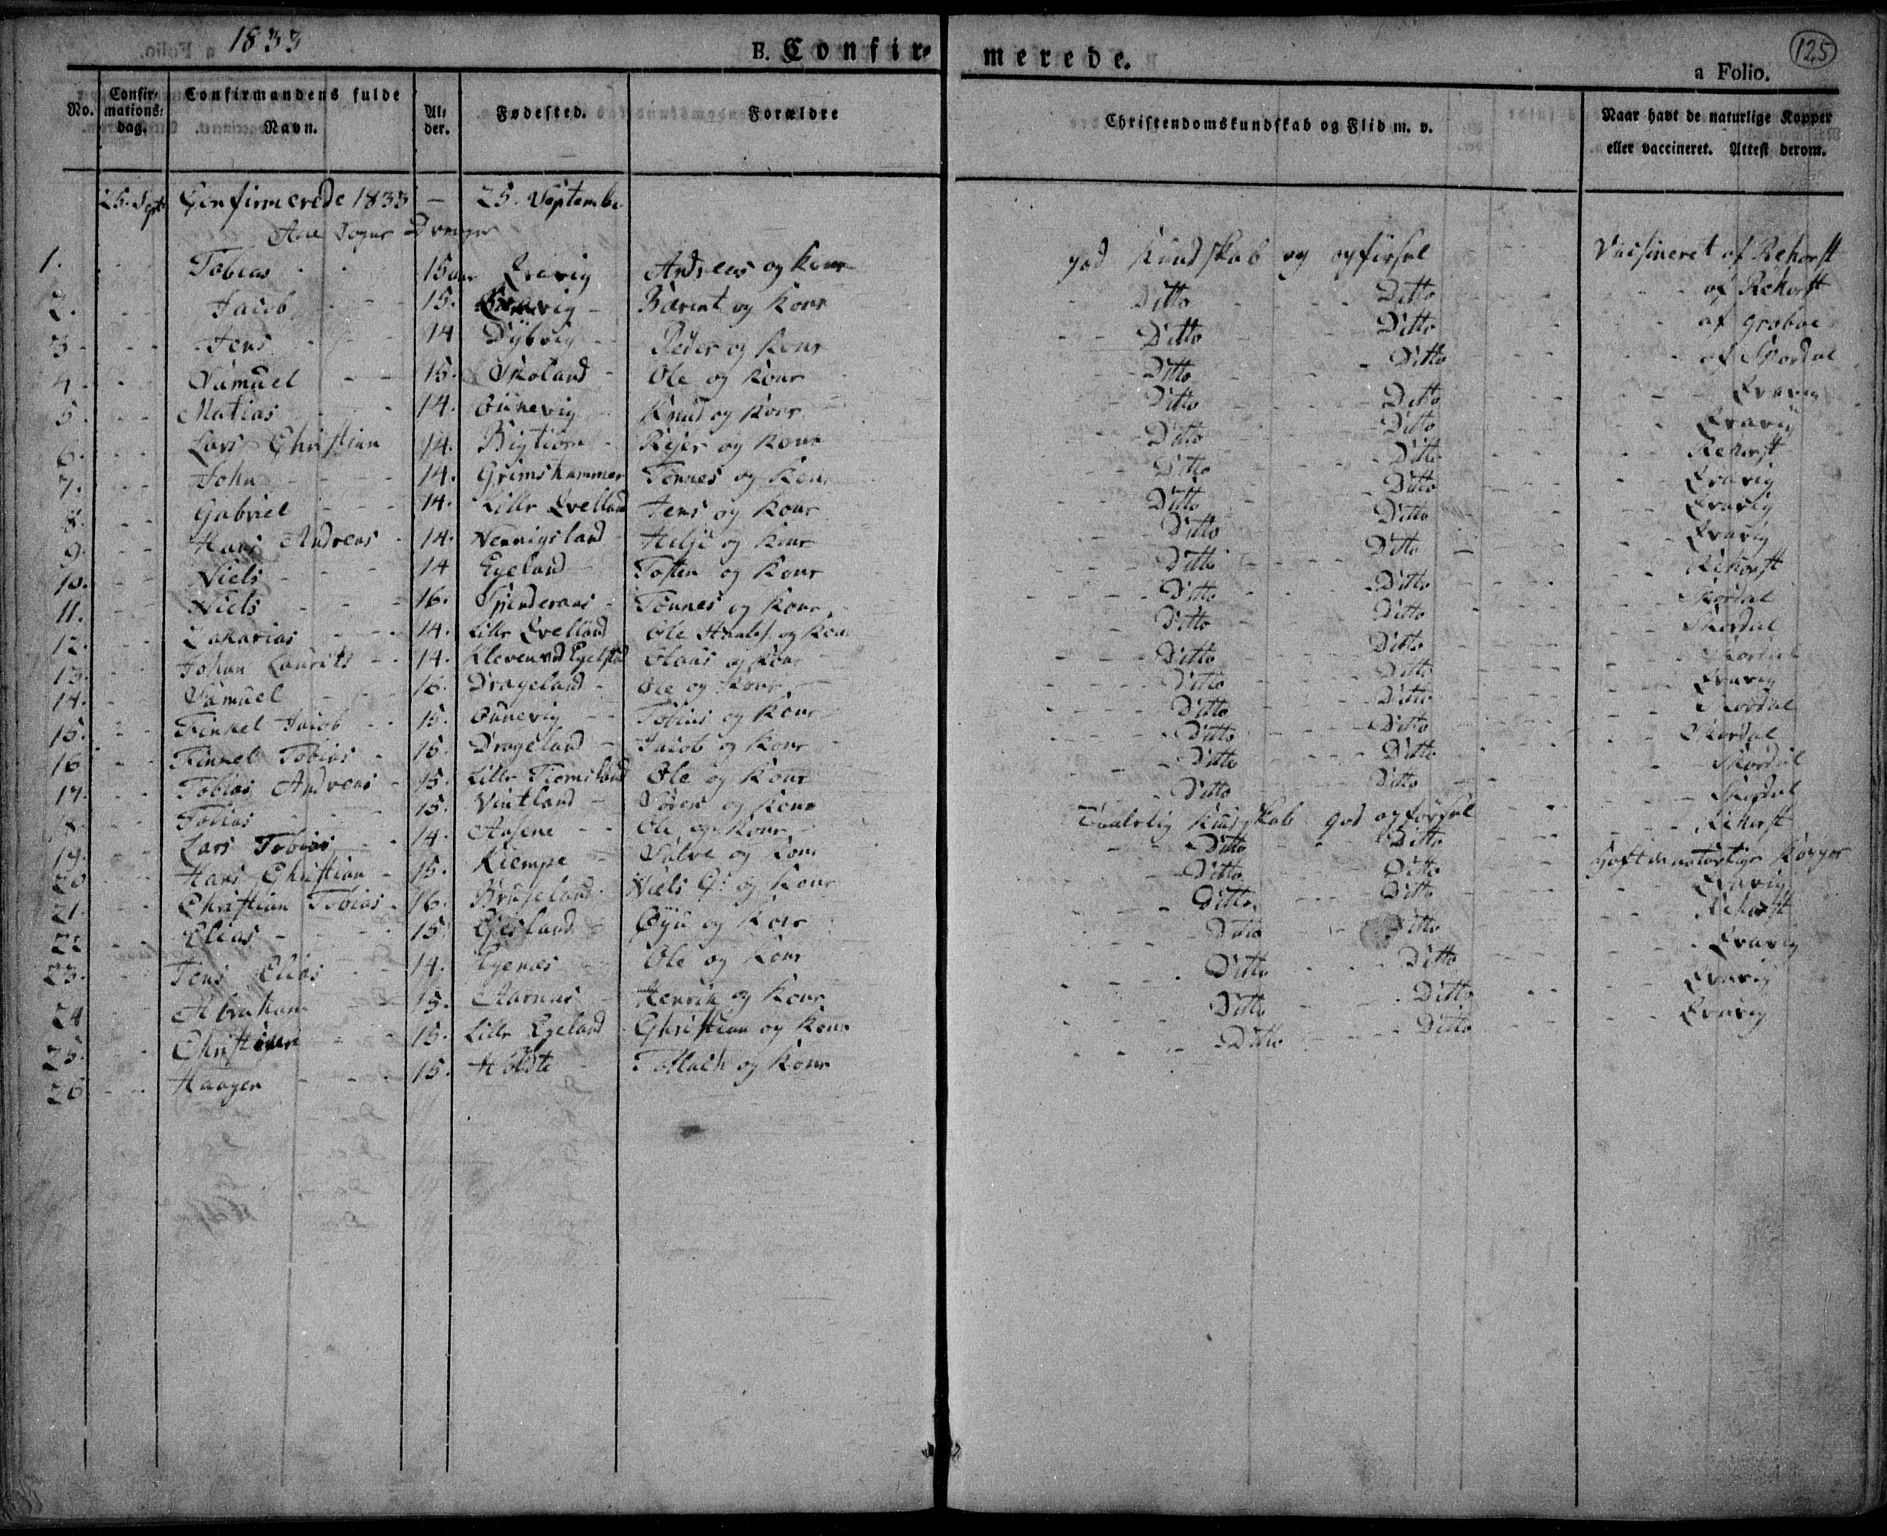 1833
B. Confirmerede.
125
a Folio.
No. Confirmations-dag. Confirmandens fulde Navn. Alder. Fødested. Forældre Christendomskundskab og Flid m. v. Naar havt de naturlige Kopper eller vaccineret. Attest derom.
25. Sept. Confirmerede 1833 - 25. September
Sogns Drenge
1. Tobias 15 aar Qvavig Andreas og Kone god Kundskab og opførsel Vacsineret af Rehorst
2. Jacob 15. Qvavig Bærent og Kone Ditto Ditto af Rehorst
3 Jens 14 Dybvig Peder og Kone Ditto Ditto af Groboe
4. Samuel 15. Skoland Ole og Kone Ditto Ditto af Skordal
5. Matias 14. Gunevig Knud og Kone Ditto Ditto Qvavig
6. Lars Christian 14. Bigtiøn Rejer og Kone Ditto Ditto Qvavig
7. John 14. Grimshammer Tønnes og Kone Ditto Ditto Rehorst
8. Gabriel 14. Lille Qvelland Jens og Kone Ditto Ditto Qvavig
9. Hans Andreas 14. Nennigsland Helje og Kone Ditto Ditto Qvavig
10. Niels 14 Egeland Tosten og Kone Ditto Ditto Qvavig
11. Niels 16. Tønnes og Kone Ditto Ditto Rehorst
12. Zakarias 14. Lille Qvelland Ole og Kone Ditto Ditto Skordal
13. Johan Laurits 14. Kleven ved Olaus og Kone Ditto Ditto Skordal
14. Samuel 16. Drageland Ole og Kone Ditto Ditto Skordal
15. Tinkel Jacob 15. Gunevig Tobias og Kone Ditto Ditto Qvavig
16 Tinkel Tobias 15. Drageland Jacob og Kone Ditto Ditto Skordal
17. Tobias Andreas 15. Lille Tiomsland Ole og Kone Ditto Ditto Skordal
18. Tobias 15. Vintland Søren og Kone Ditto Ditto Skordal
19. Lars Tobias 14. Aasene Ole og Kone Taalelig Kundskab god opførsel Skordal
20 Hans Christian 15. Kiempe Salve og Kone Ditto Ditto Rehorst
21. Christian Tobias 16. Bruseland Niels G: og Kone Ditto Ditto haft de naturlige Kopper
22 Elias 15 Egeland og Kone Ditto Ditto Qvavig
23. Jens Elias 14. Egenes Ole og Kone Ditto Ditto Rehorst
24 Abraham 15. Aarnes Henrik og Kone Ditto Ditto Qvavig
25. Christian 15. Lille Egeland Christian og Kone Ditto Ditto Qvavig
26 Haagen 15. Holdte Tollach og Kone Ditto Ditto Qvavig